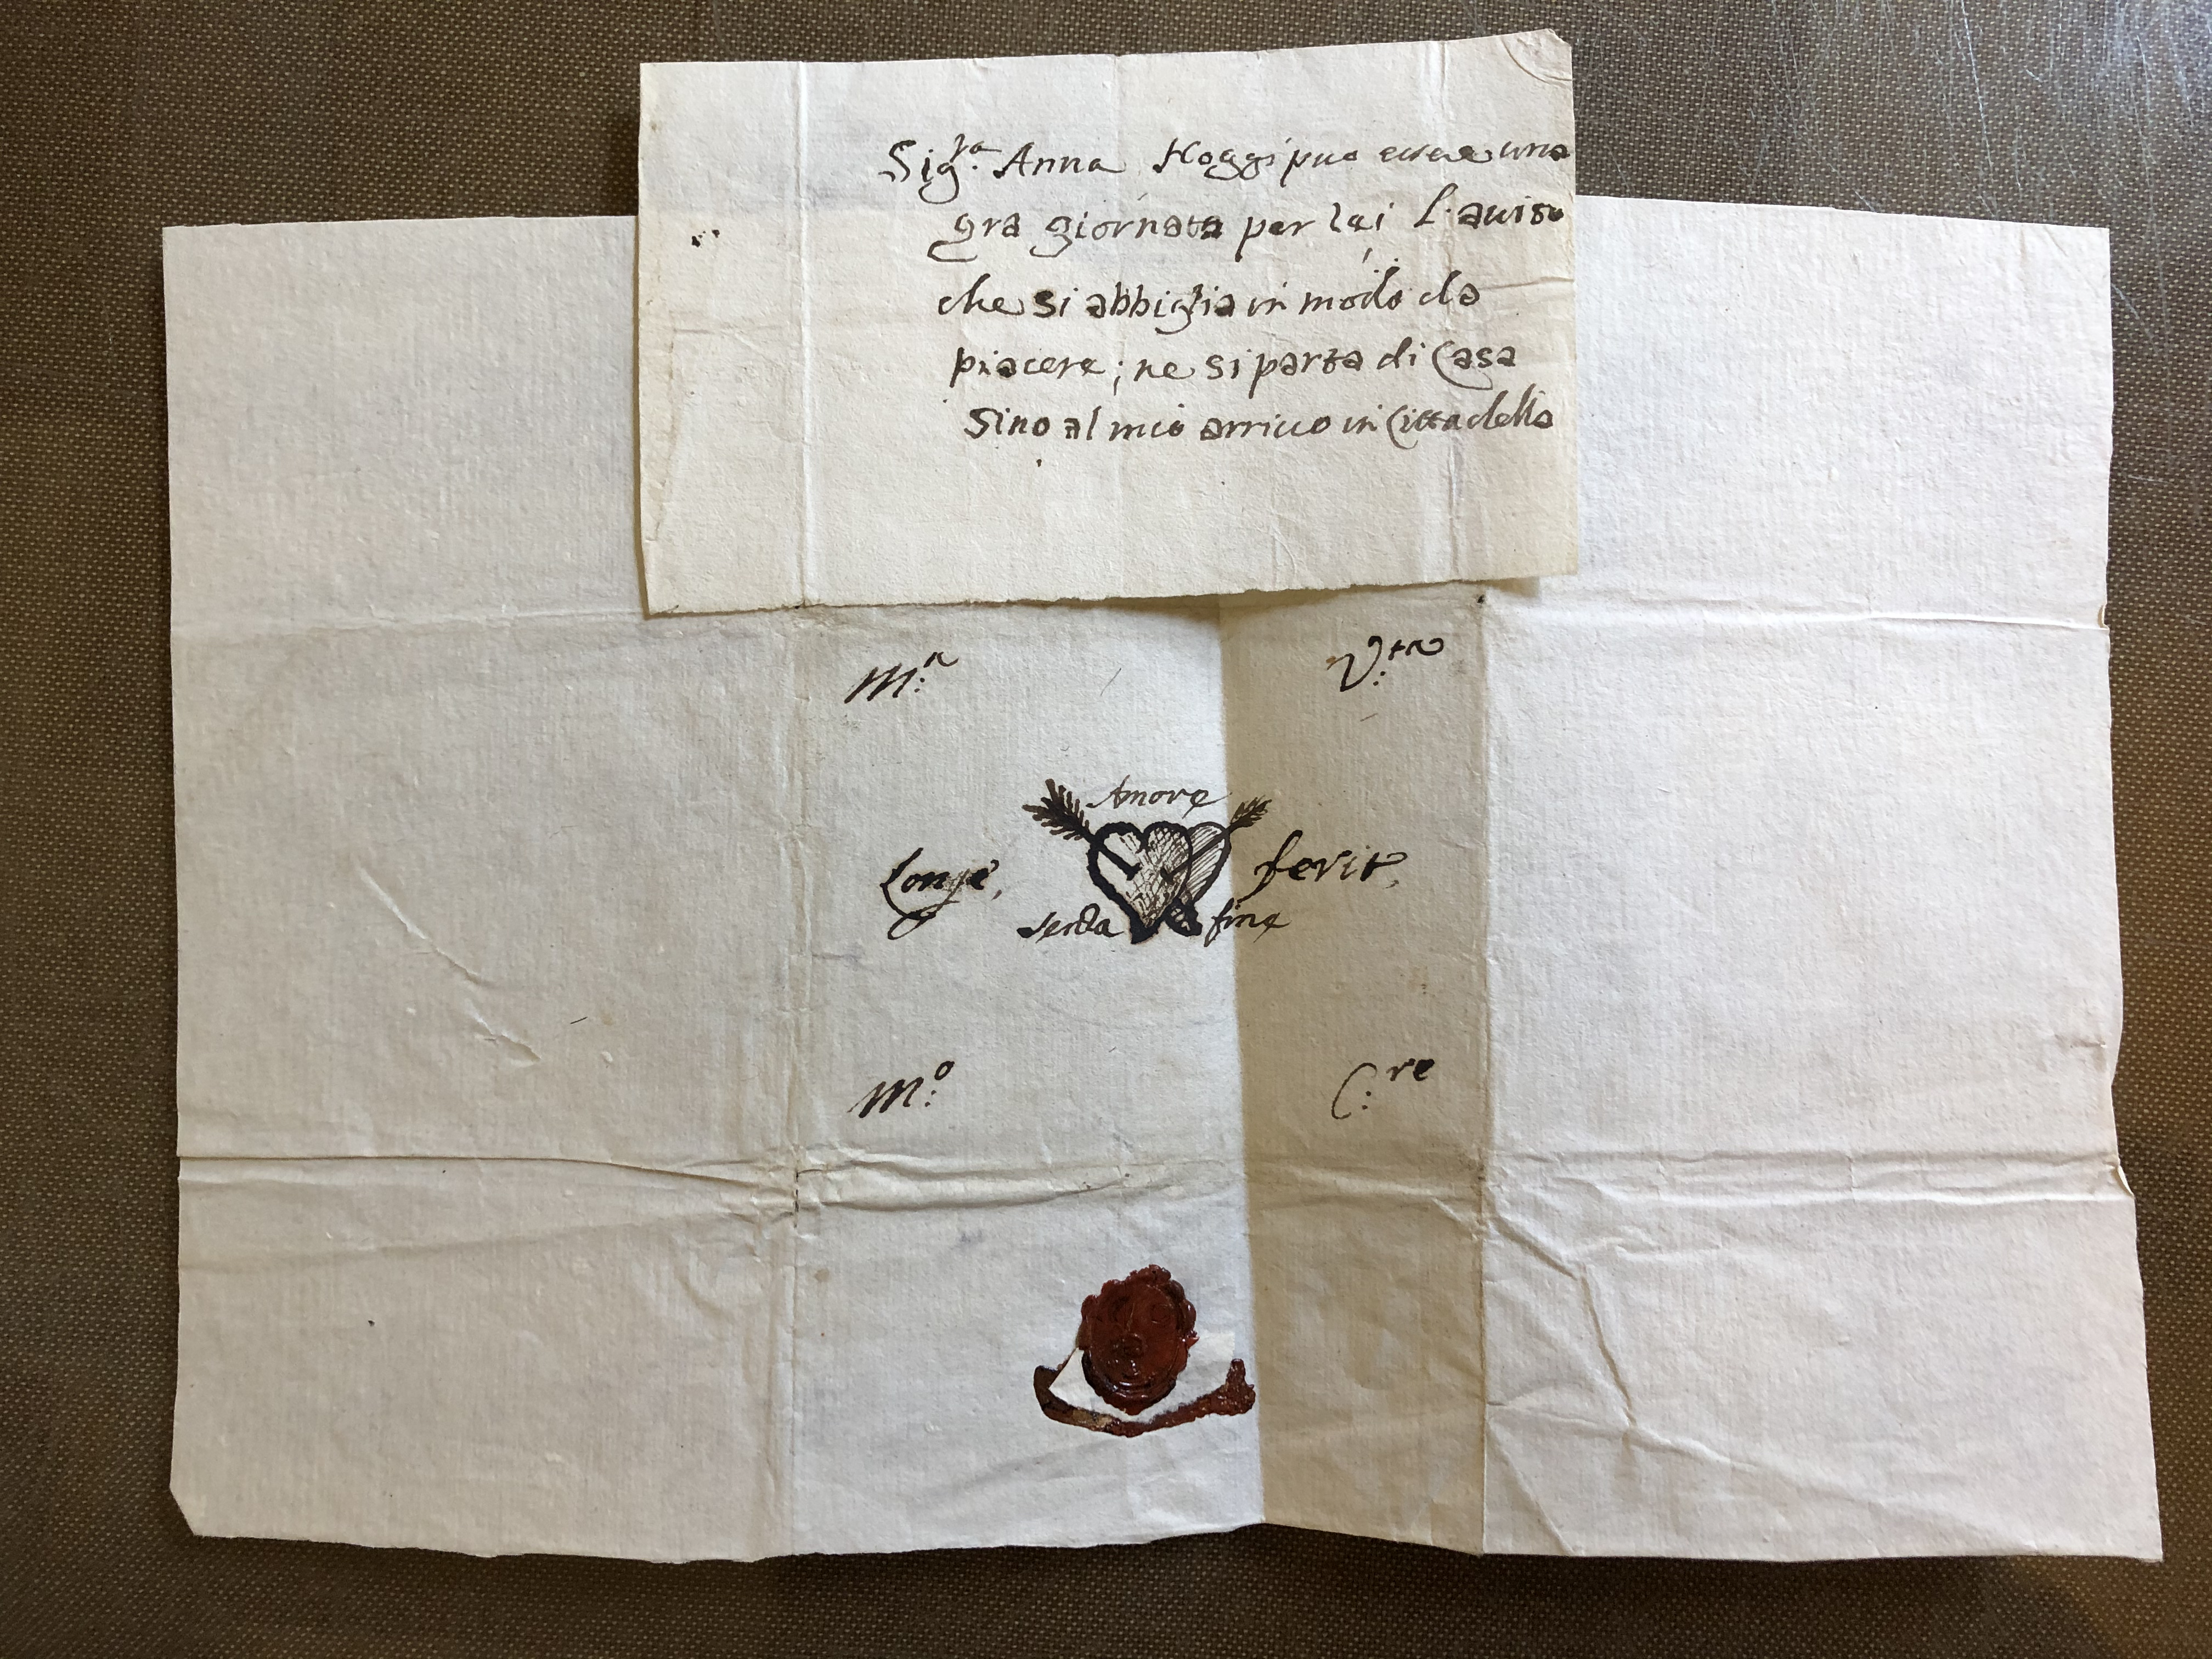 Sig.ra Anna Hoggi puo essere una
gra giornata per lei L'auiso
che si abbiglia in modo da
piacere; ne si parta di Casa
Sino al mio arriuo in Cittadella
M:a V:tra
Amore
Longe, ferit,
senza fine
M:o C:re